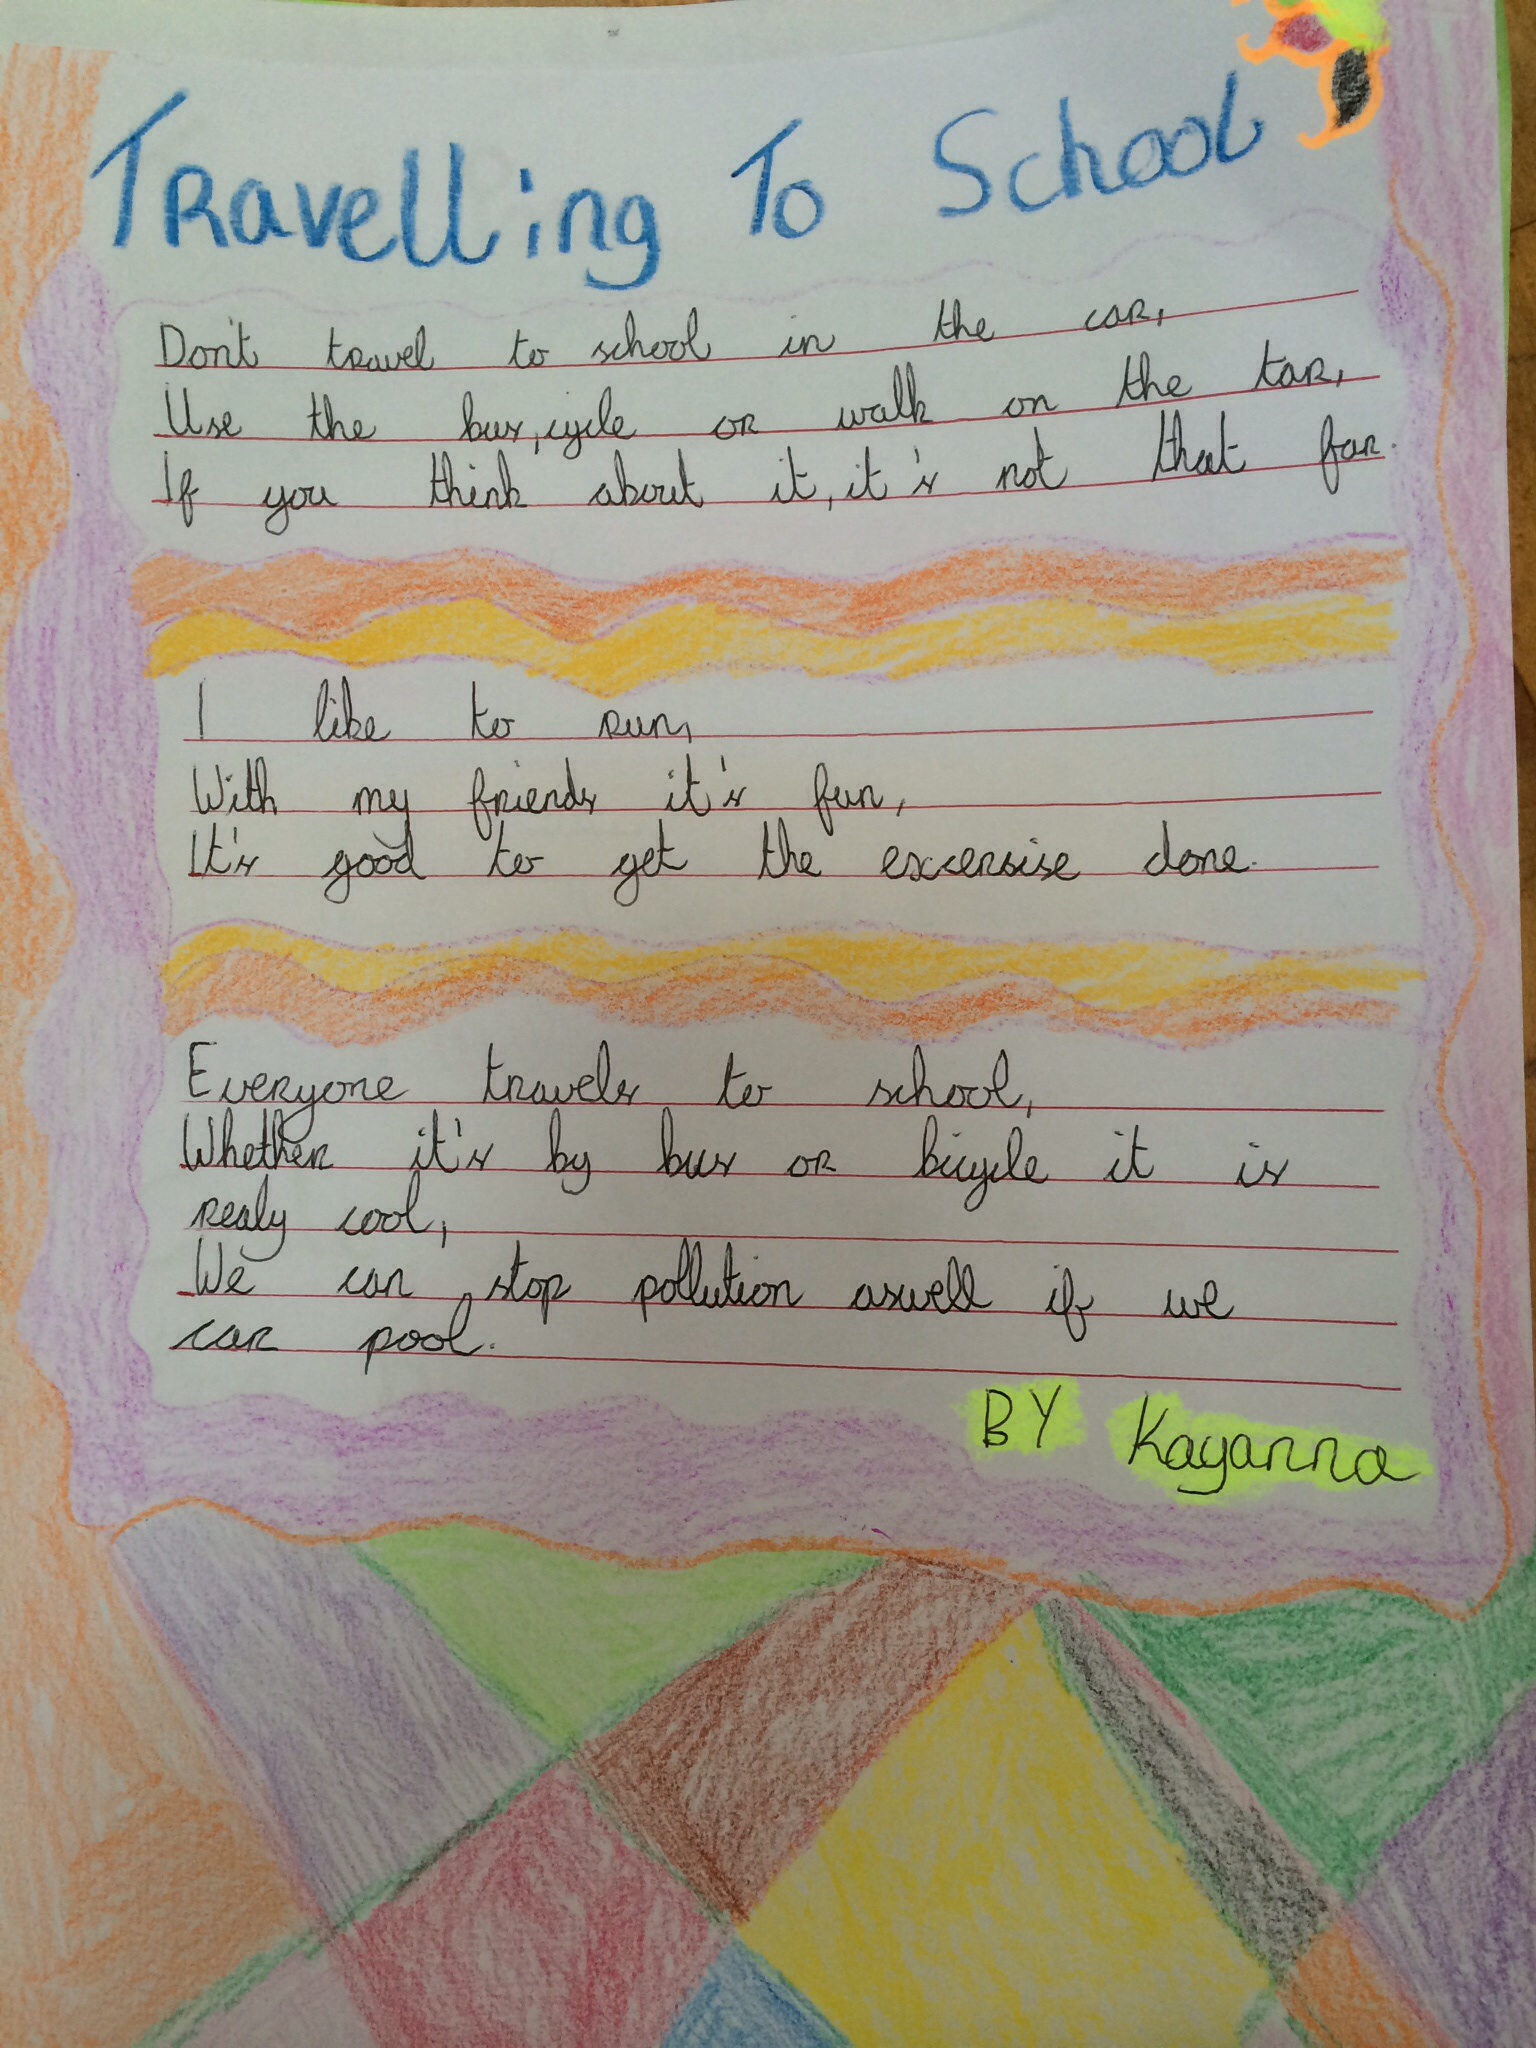 Travelling To School
Don't travel to school in the car,
Use the bus, cycle or walk on the tar,
If you think about it, it's not that far.
I like to run,
With my friends it's fun,
It's good to get the excersise done.
Everyone travels to school,
Whether it's by bus or bicycle it is
realy cool,
We can stop pollution aswell if we
car pool.
BY Kayanna